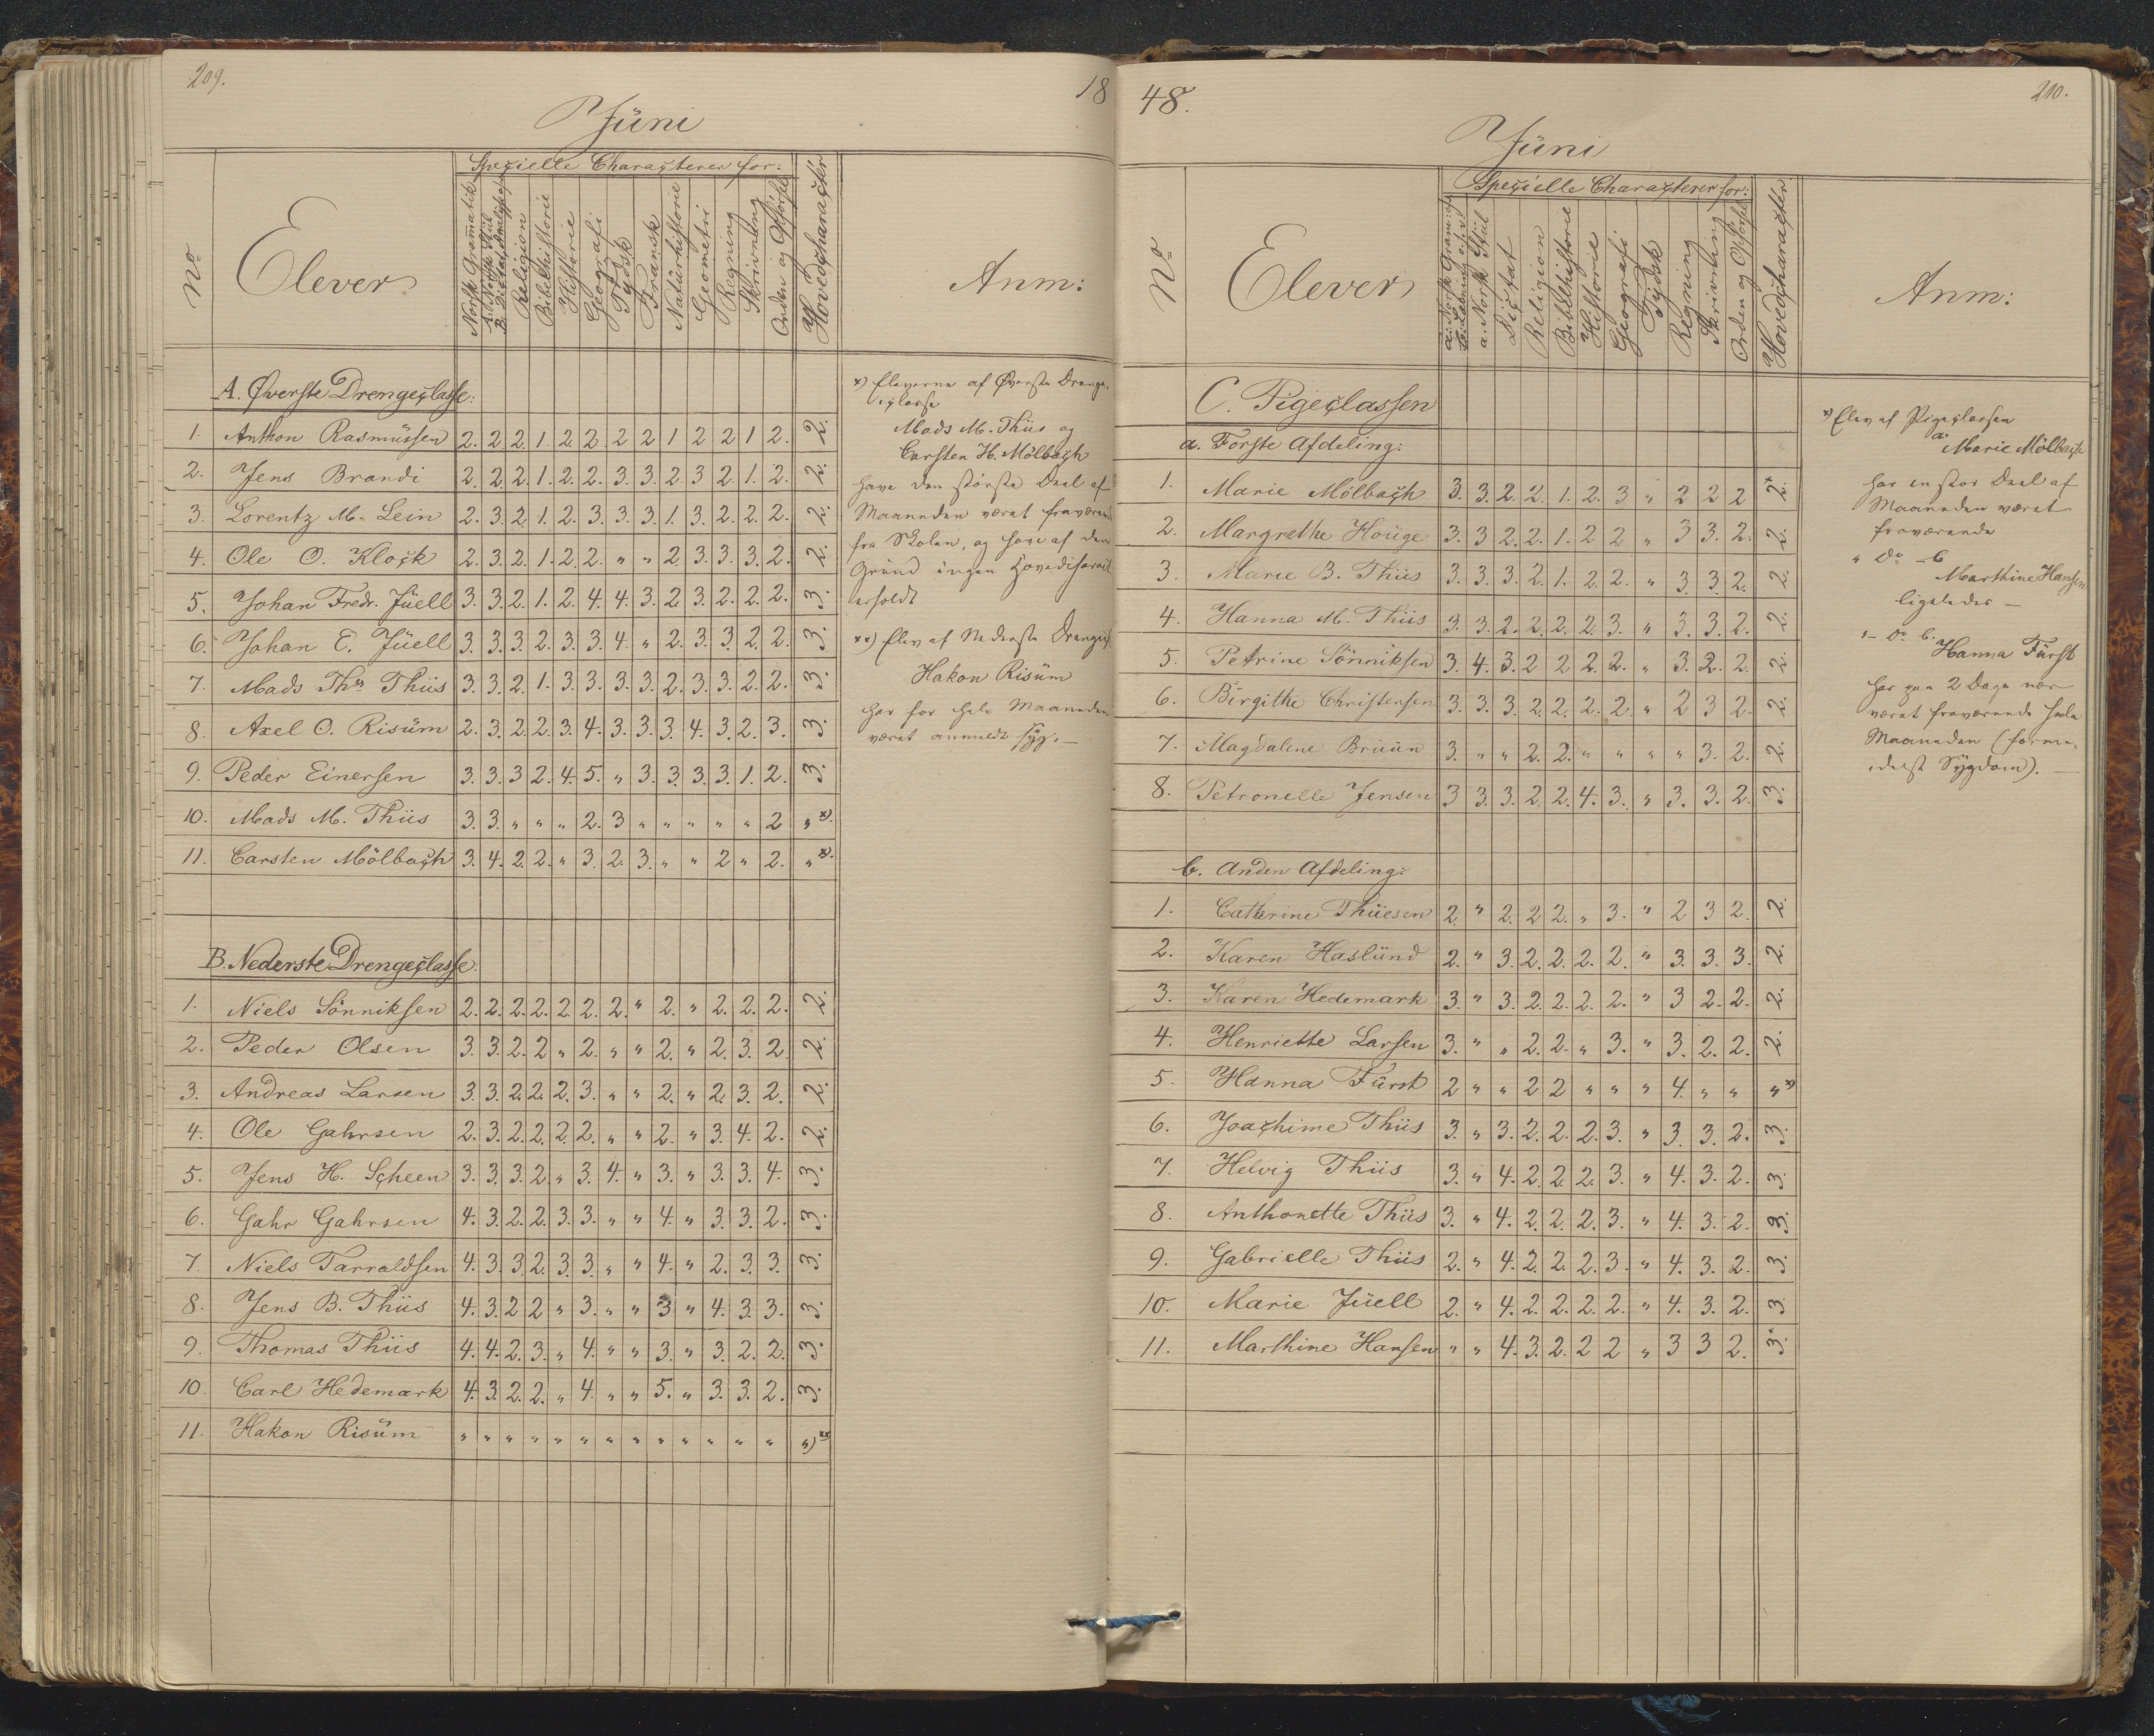 209.
18
Jüni
No
Elever
Specielle Characterer for:
Norsk Grammatik
A: Norsk Stiil
B: Dictat, Analyse
Religion
Bibelhistorie
Historie
Geografi
Tydsk
Fransk
Natürhistorie
Geometri
Regning
Skrivning
Orden og Opførsel
Hovedcharacter
Anm:
A. Øverste Drengeclasse:
1. Anthon Rasmüssen 2. 2 2. 1. 2. 2. 2 2 1 2 2 1 2. 2.
2. Jens Brandi 2. 2. 2. 1. 2. 2. 3. 3. 2. 3 2. 1. 2. 2.
3. Lorentz M. Lein 2. 3. 2. 1. 2. 3. 3. 3. 1. 3. 2. 2. 2. 2.
4. Ole O. Klock 2. 3. 2. 1. 2. 2. " " 2. 3. 3. 3. 2. 2.
5. Johan Fredr. Jüell 3. 3. 2. 1. 2. 4. 4. 3. 2. 3. 2. 2. 2. 3.
6. Johan E. Jüell 3. 3. 3. 2. 3. 3. 4. " 2. 3. 3. 2. 2. 3.
7. Mads Ths Thiis 3. 3. 2. 1. 3. 3. 3. 3. 2. 3. 3. 2. 2. 3.
8. Axel O. Risüm 2. 3. 2. 2. 3. 4. 3. 3. 3. 4. 3. 2. 3. 3.
9. Peder Einersen 3. 3. 3 2. 4. 5. " 3. 3. 3. 3. 1. 2. 3.
10. Mads M. Thiis 3. 3. " " " 2. 3 " " " " " 2 " x).
11. Carsten Mölbach 3. 4. 2. 2. " 3. 2. 3. " " 2 " 2. " x).
x) Eleverne af Øverste Drenge-
classe
Mads M. Thiis og
Carsten H. Mölbach
have den største Deel af
Maaneden været fraværende
fra Skolen, og have af den
Grund ingen Hovedcharact.
erholdt
xx) Elev af Nederste Drengecl.
Hakon Risüm
har for hele Maaneden
været anmeldt syg. —
B. Nederste Drengeclasse:
1. Niels Sönniksen 2. 2. 2. 2. 2. 2. 2. " 2. " 2. 2. 2. 2.
2. Peder Olsen 3. 3. 2. 2 " 2. " " 2. " 2. 3. 2. 2.
3. Andreas Larsen 3. 3. 2. 2. 2. 3. " " 2. " 2. 3. 2. 2.
4. Ole Gahrsen 2. 3. 2. 2. 2. 2. " " 2. " 3. 4. 2. 2.
5. Jens H. Scheen 3. 3. 3. 2. " 3. 4. " 3. " 3. 3. 4. 3.
6. Gahr Gahrsen 4. 3. 2. 2. 3. 3. " " 4. " 3. 3. 2. 3.
7. Niels Tarraldsen 4. 3. 3. 2. 3. 3. " " 4. " 2. 3. 3. 3.
8. Jens B. Thiis 4. 3. 2 2 " 3. " " 3 " 4. 3. 3. 3.
9. Thomas Thiis 4. 4. 2. 3. " 4. " " 3. " 3. 2. 2. 3.
10. Carl Hedemark 4. 3. 2. 2. " 4. " " 5. " 3. 3. 2. 3.
11. Hakon Risüm " " " " " " " " " " " " " " xx)
48.
210.
Jüni
No
Elever
Specielle Characterer for:
a. Norsk Stiil
Dictat
Religion
Bibelhistorie
Historie
Geografi
Tydsk
Regning
Skrivning
Orden og Opførsel
Hovedcharacter
Anm:
C. Pigeclassen
a. Første Afdeling:
1. Marie Mölbach 3. 3. 2. 2. 1. 2. 3 " 2 2 2 2. x
2. Margrethe Houge 3. 3 2. 2. 1. 2 2 " 3 3. 2. 2.
3. Marie B. Thiis 3. 3. 3. 2. 1. 2. 2. " 3. 3 2. 2.
4. Hanna M. Thiis 3. 3. 2. 2. 2. 2. 3. " 3. 3. 2. 2.
5. Petrine Sönniksen 3. 4. 3. 2 2 2. 2. " 3. 2. 2. 2.
6. Birgithe Christensen 3. 3. 3. 2. 2. 2. 2. " 2 3 2. 2.
7. Magdalene Bruün 3. " " 2. 2. " " " " 3. 2. 2.
8. Petronelle Jensen 3 3. 3. 2. 2. 4. 3. " 3. 3. 2. 3.
b. Anden Afdeling:
1. Cathrine Thüesen 2. " 2. 2 2. " 3. " 2 3 2. 2.
2. Karen Haslünd 2. " 3. 2. 2. 2. 2. " 3. 3. 3. 2.
3. Karen Hedemark 3. " 3. 2. 2. 2. 2. " 3 2. 2. 2.
4. Henriette Larsen 3. " " 2. 2. " 3. " 3. 2. 2. 2.
5. Hanna Fürst 2 " " 2 2 " " " 4. " " " x)
6. Joachime Thiis 3. " 3. 2. 2. 2. 3. " 3. 3. 2. 3.
7. Helvig Thiis 3. " 4. 2. 2. 2. 3. " 4. 3. 2. 3.
8. Anthonette Thiis 3. " 4. 2. 2. 2. 3. " 4. 3. 2. 3.
9. Gabrielle Thiis 2. " 4. 2. 2. 2. 3. " 4. 3. 2. 3.
10. Marie Jüell 2. " 4. 2. 2. 2. 2. " 4. 3. 2. 3.
11. Marthine Hansen " " 4. 3. 2. 2 2 " 3 3 2. 3. x
x) Elev af Pigeclassen
a. Marie Mölbach
har en stor Deel af
Maaneden været
fraværende
" Do b
Marthine Hansen
ligeledes —
" Do b.
Hanna Fürst
har paa 2 Dage nær
været fraværende hele
Maaneden (forme-
delst Sygdom). —